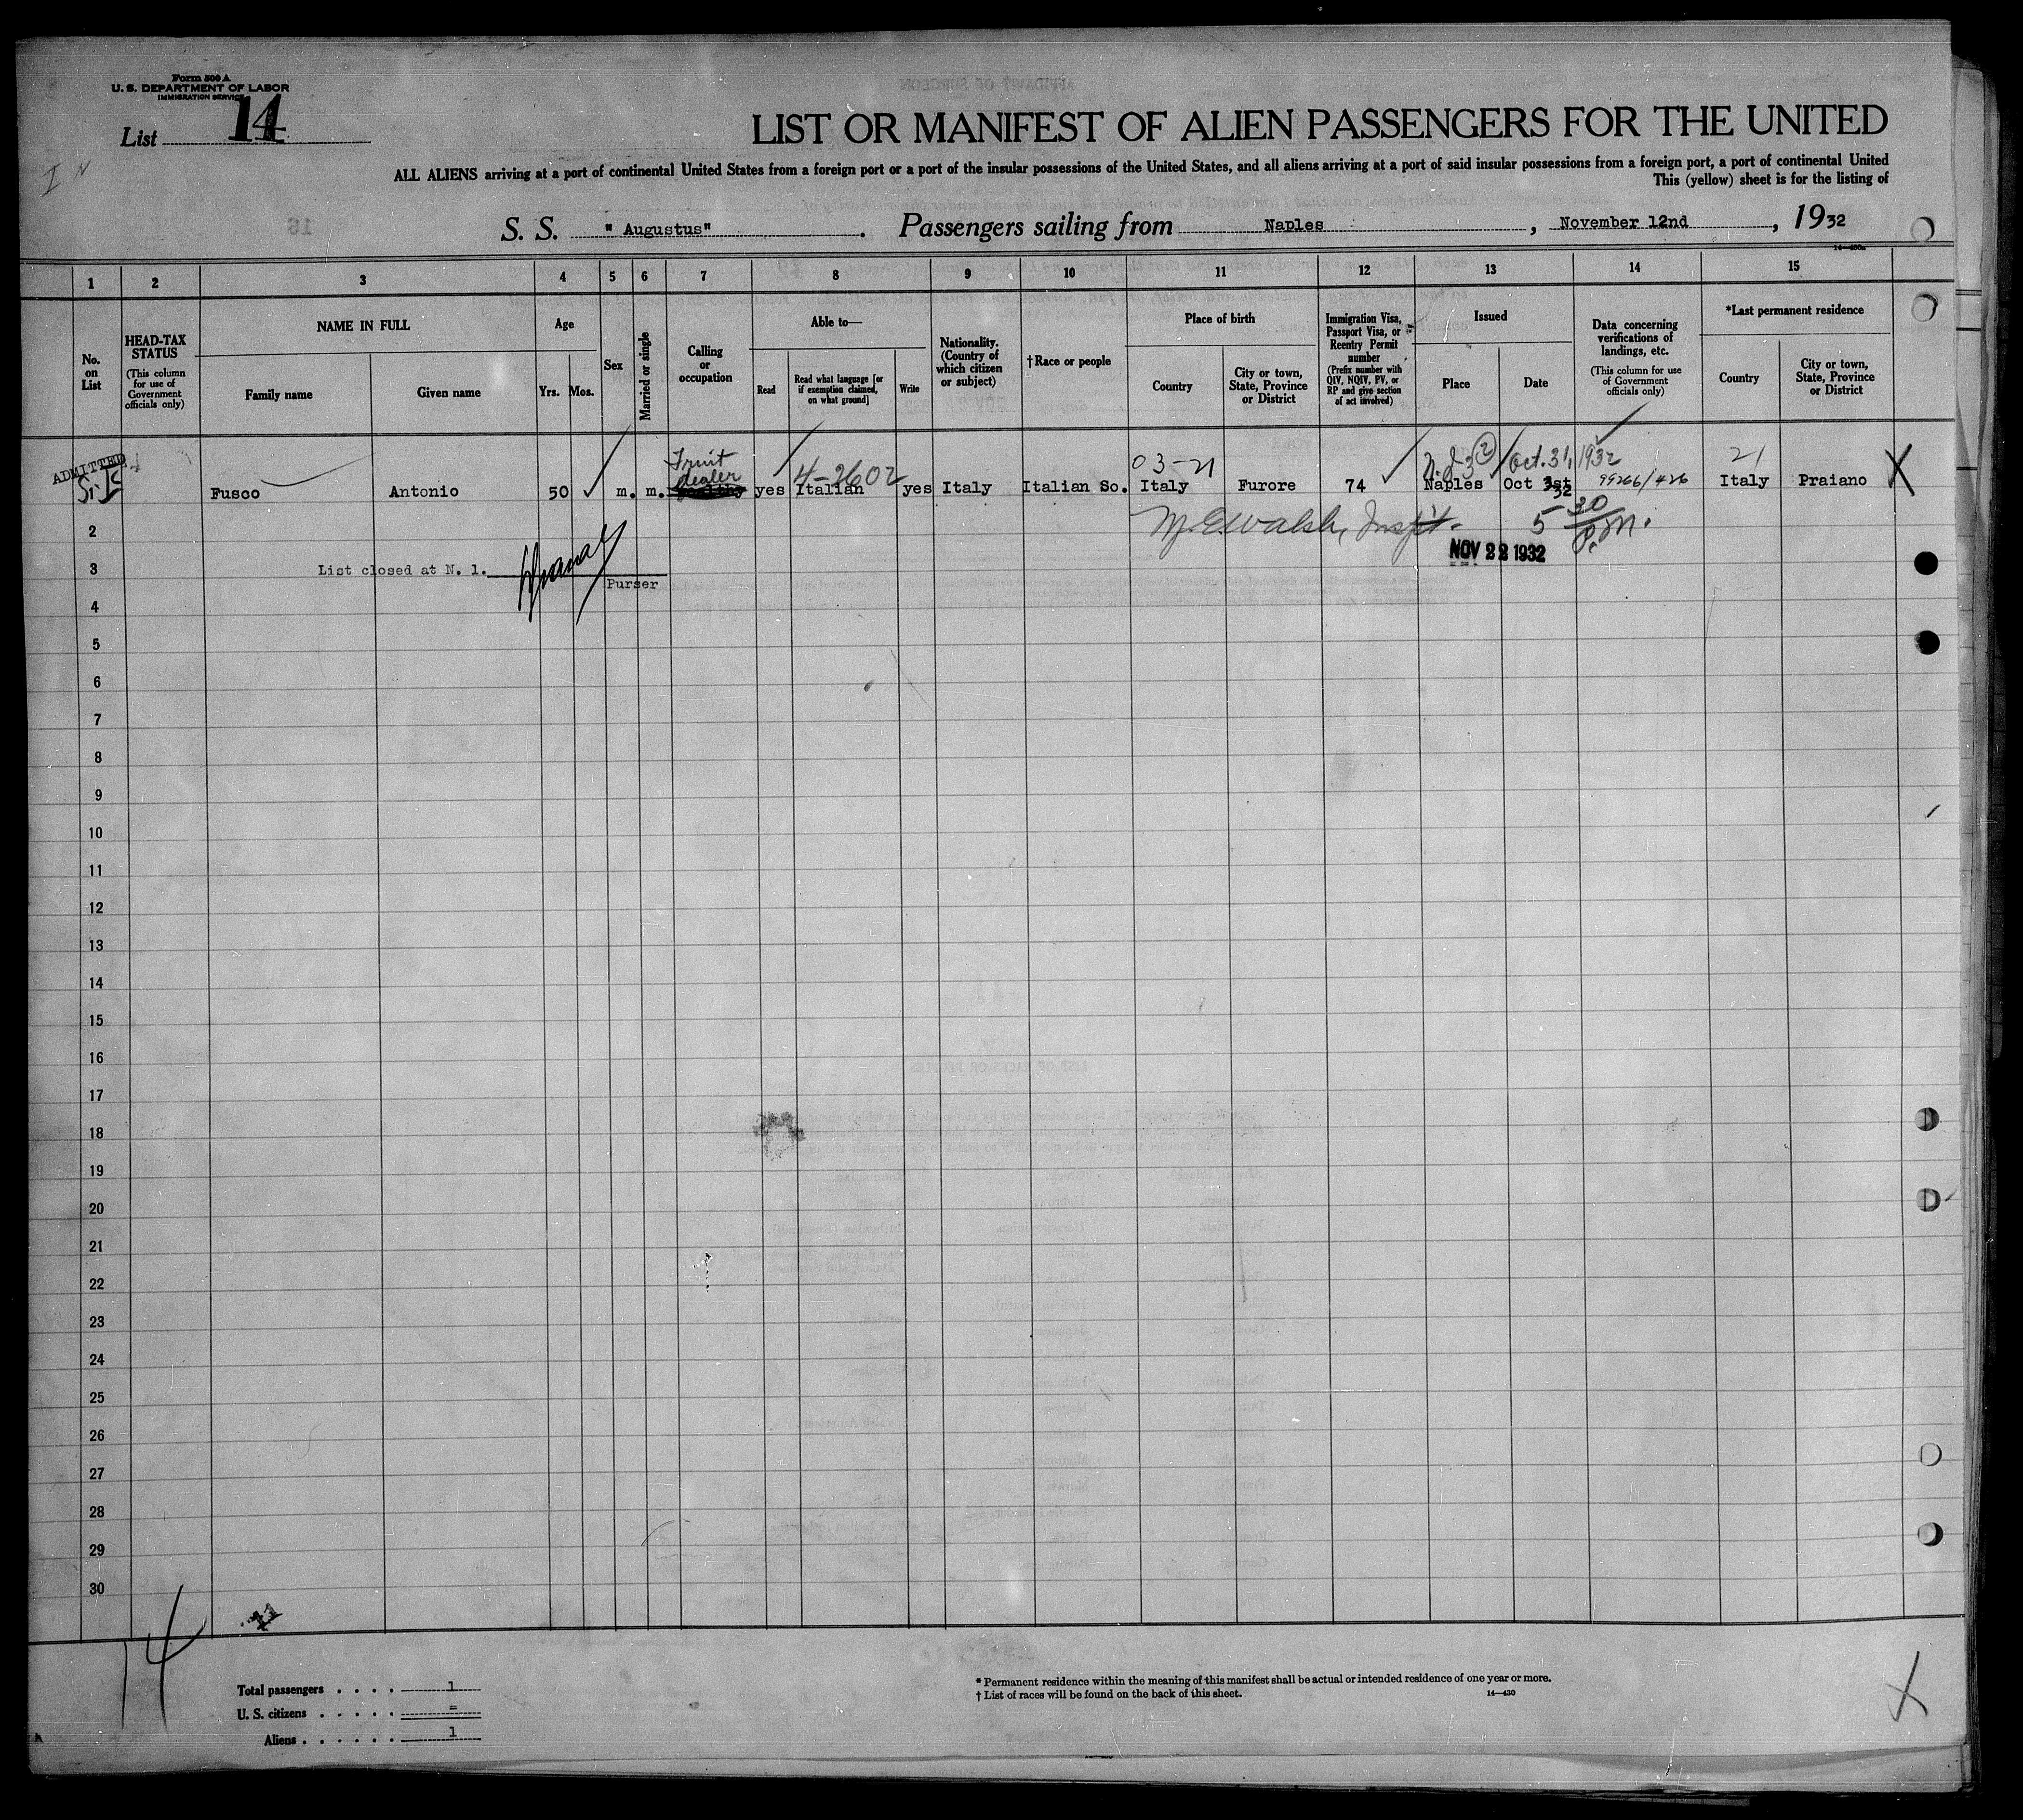 Form 500 A
U. S. DEPARTMENT OF LABOR
IMMIGRATION SERVICE
List 14
LIST OR MANIFEST OF ALIEN PASSENGERS FOR THE UNITED
ALL ALIENS arriving at a port of continental United States from a foreign port or a port of the insular possessions of the United States, and all aliens arriving at a port of said insular possessions from a foreign port, a port of continental United
This (yellow) sheet is for the listing of
S. S. "Augustus". Passengers sailing from Naples, November 12nd, 1932
14—430a
1 2 3 4 5 6 7 8 9 10 11 12 13 14 15
No. on List
HEAD-TAX STATUS (This column for use of Government officials only)
NAME IN FULL
Family name Given name
Age
Yrs. Mos.
Sex
Married or single
Calling or occupation
Able to—
Read
Read what language [or if exemption claimed, on what ground]
Write
Nationality. (Country of which citizen or subject)
†Race or people
Place of birth
Country
City or town, State, Province or District
Immigration Visa, Passport Visa, or Reentry Permit number (Prefix number with QIV, NQIV, PV, or RP and give section of act involved)
Issued
Place Date
Data concerning verifications of landings, etc. (This column for use of Government officials only)
*Last permanent residence
Country
City or town, State, Province or District
ADMITTED
Fruit dealer 4-2602 03-21 Oct. 31, 1932 21
Fusco Antonio 50 m. m. yes Italian yes Italy Italian So. Italy Furore 74 Naples Oct 31st 32 99266/426 Italy Praiano X
2 M. E. Walsh, Insp't. 5 30 P.M.
NOV 22 1932
3 List closed at N. 1. Purser
4
5
6
7
8
9
10
11
12
13
14
15
16
17
18
19
20
21
22
23
24
25
26
27
28
29
30
14
Total passengers . . . . 1
U. S. citizens . . . . . =
Aliens . . . . . . 1
* Permanent residence within the meaning of this manifest shall be actual or intended residence of one year or more.
† List of races will be found on the back of this sheet. 14—430
X